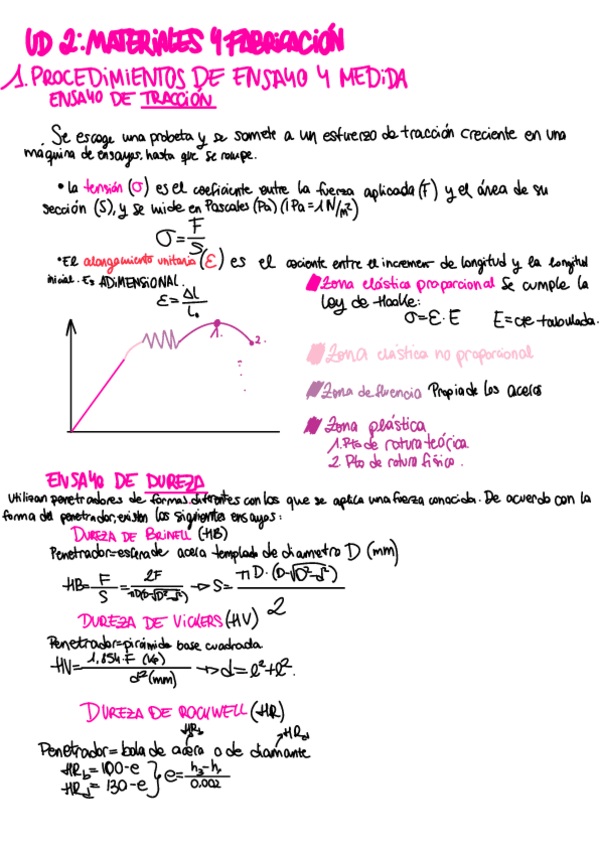 UD 2: MATERIALES Y FABRICACIÓN
1. PROCEDIMIENTOS DE ENSAYO Y MEDIDA
ENSAYO DE TRACCIÓN
Se escoge una probeta y se somete a un esfuerzo de tracción creciente en una
máquina de ensayos, hasta que se rompe.
• La tensión (σ) es el coeficiente entre la fuerza aplicada (F) y el área de su
sección (S), y se mide en Pascales (Pa) (1 Pa = 1 N/m²)
σ = F/S
• El alongamiento unitario (ε) es el cociente entre el increment de longitud y la longitud
inicial. Es ADIMENSIONAL.
ε = ΔL/L₀
Zona elástica proporcional Se cumple la
Ley de Hooke:
σ = ε · E E = cte tabulada.
Zona elástica no proporcional
Zona de fluencia Propia de los aceros
Zona plástica
1. Pto de rotura teórica
2. Pto de rotura físico.
1.
2.
ENSAYO DE DUREZA
Utilizan penetradores de formas diferentes con los que se aplica una fuerza conocida. De acuerdo con la
forma del penetrador, existen los siguientes ensayos:
DUREZA DE BRINELL (HB)
Penetrador = esfera de acero templado de diametro D (mm)
HB = F/S = 2F/(πD(D-√D²-d²)) → S = πD · (D-√D²-d²)/2
DUREZA DE VICKERS (HV)
Penetrador = pirámide base cuadrada
HV = 1,854·F (Kp)/d² (mm) → d = l² + l².
DUREZA DE ROCKWELL (HR)
HRb HRd
Penetrador = bola de acero o de diamante
HRb = 100 - e
HRd = 130 - e
e = h₃ - h₁/0.002